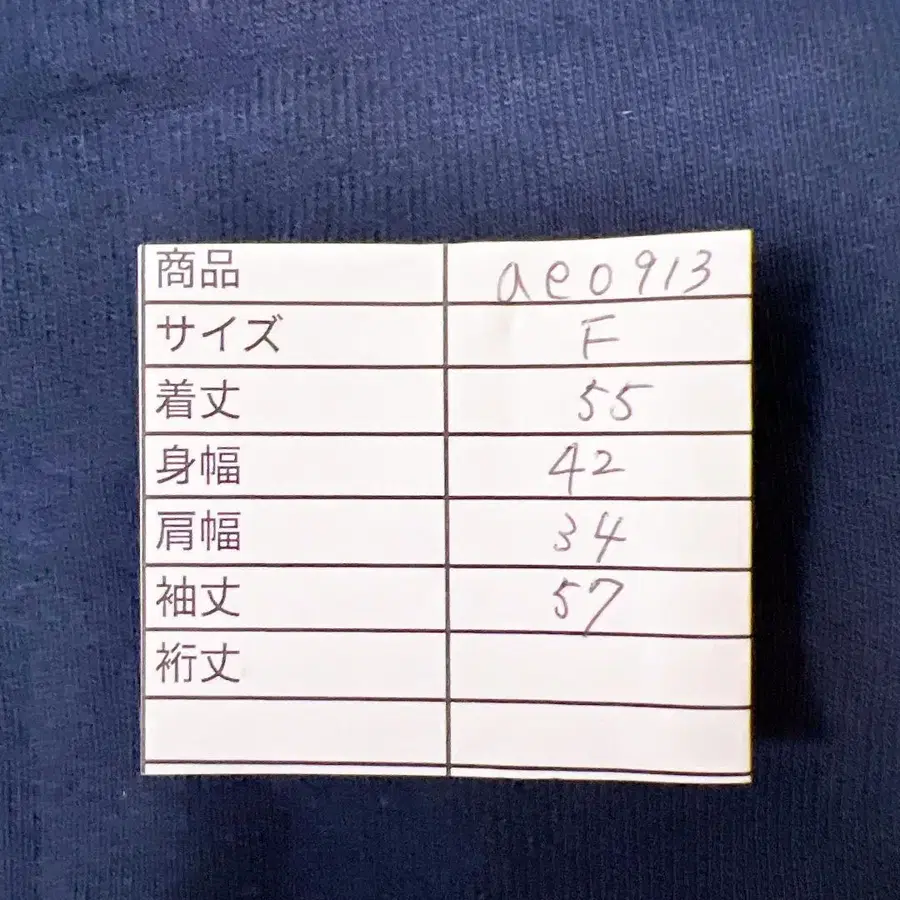 商品 ae0913
サイズ F
着丈 55
身幅 42
肩幅 34
袖丈 57
裄丈